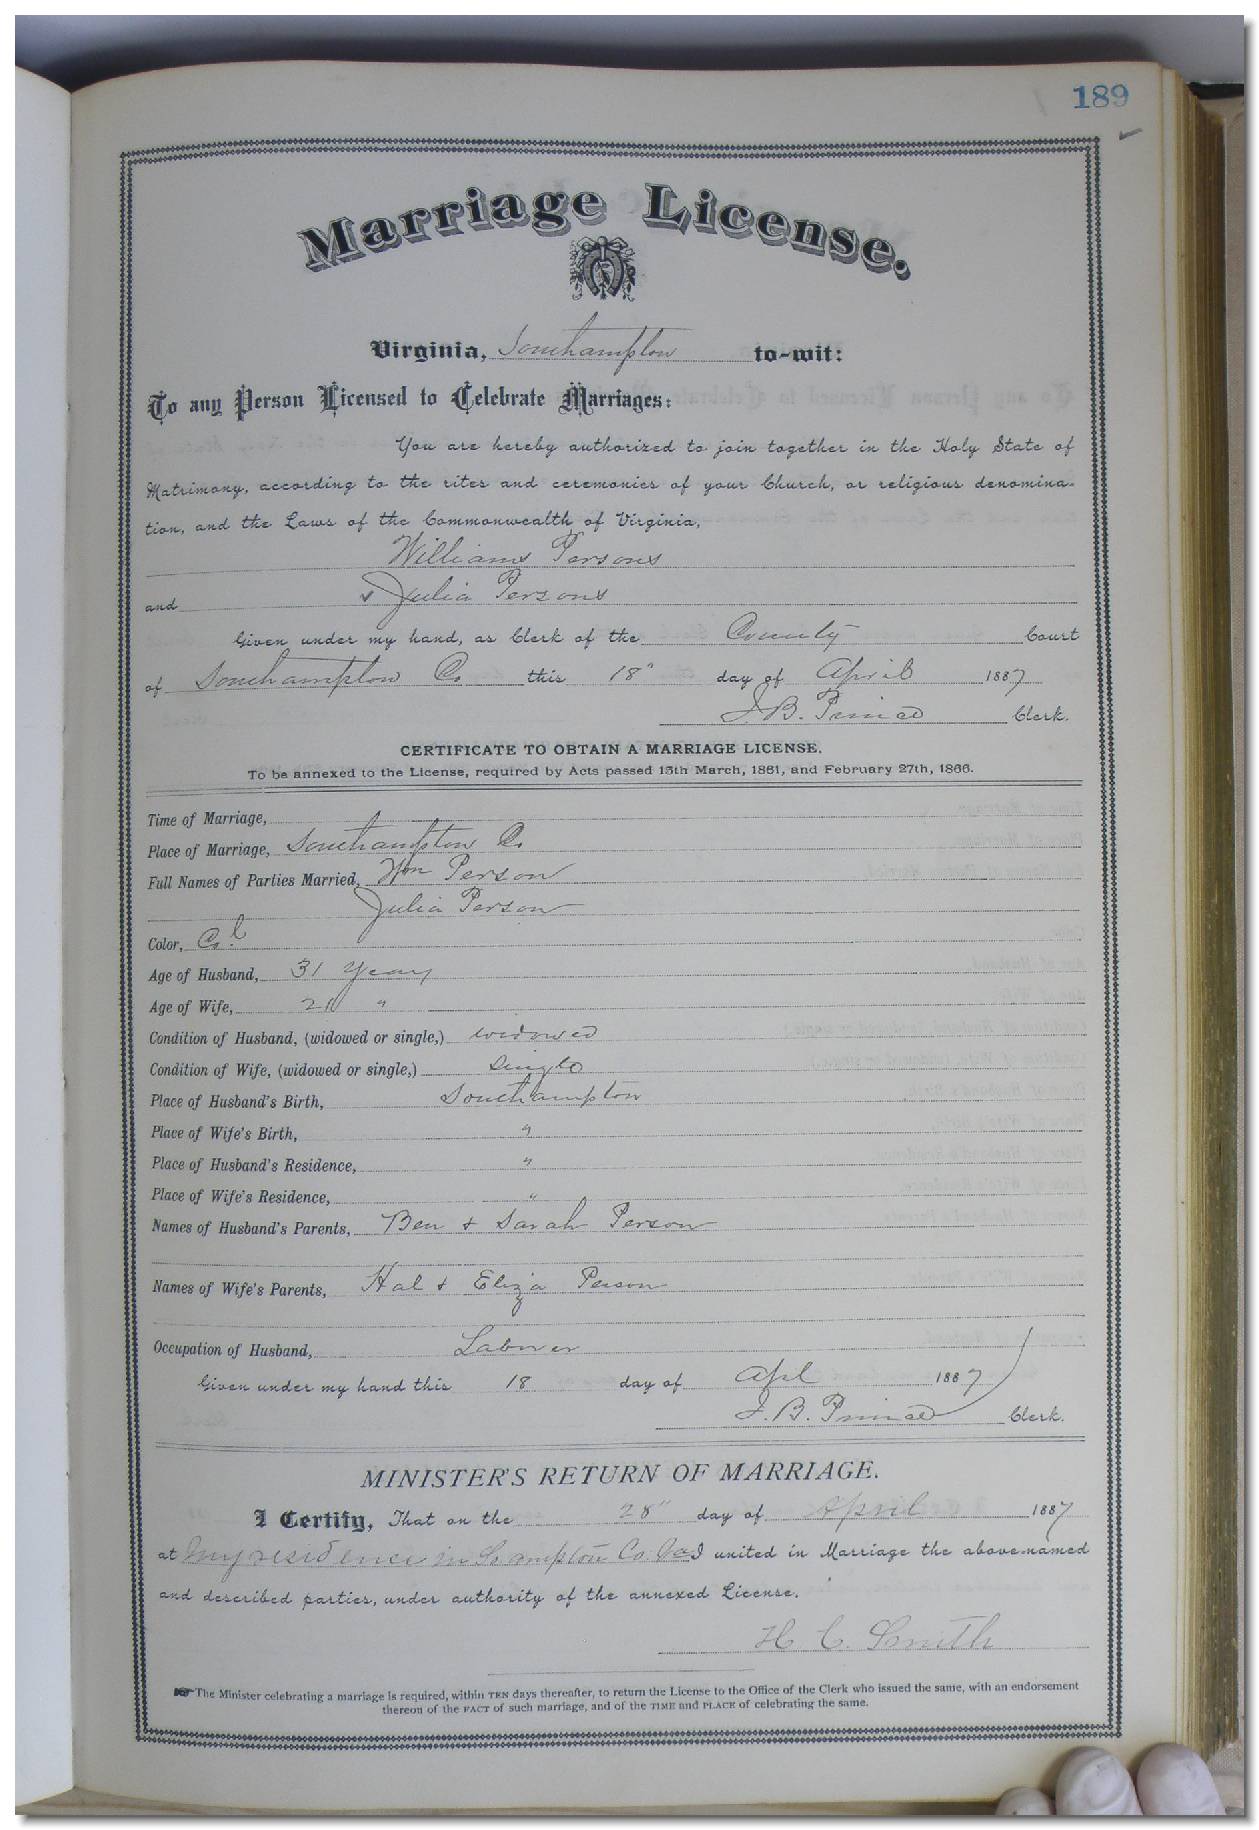 189
Marriage License.
Virginia, Southampton to-wit:
To any Person Licensed to Celebrate Marriages:
You are hereby authorized to join together in the Holy State of
Matrimony, according to the rites and ceremonies of your Church, or religious denomina-
tion, and the Laws of the Commonwealth of Virginia,
Williams Persons
and & Julia Persons
Given under my hand, as Clerk of the County Court
of Southampton Co. this 18" day of April 1887
J. B. Prince Clerk.
CERTIFICATE TO OBTAIN A MARRIAGE LICENSE.
To be annexed to the License, required by Acts passed 15th March, 1861, and February 27th, 1866.
Time of Marriage,
Place of Marriage, Southampton Co.
Full Names of Parties Married, Wm Person
Julia Person
Color, Col
Age of Husband, 31 Years
Age of Wife, 21 "
Condition of Husband, (widowed or single,) widowed
Condition of Wife, (widowed or single,) Single
Place of Husband's Birth, Southampton
Place of Wife's Birth, "
Place of Husband's Residence, "
Place of Wife's Residence, "
Names of Husband's Parents, Ben & Sarah Person
Names of Wife's Parents, Hal & Eliza Person
Occupation of Husband, Laborer
Given under my hand this 18 day of Apl 1887
J. B. Prince Clerk.
MINISTER'S RETURN OF MARRIAGE.
I Certify, That on the 28" day of April 1887
at My residence in S. ampton Co. Va I united in Marriage the above-named
and described parties, under authority of the annexed License.
H. C. Smith
The Minister celebrating a marriage is required, within TEN days thereafter, to return the License to the Office of the Clerk who issued the same, with an endorsement
thereon of the FACT of such marriage, and of the TIME and PLACE of celebrating the same.